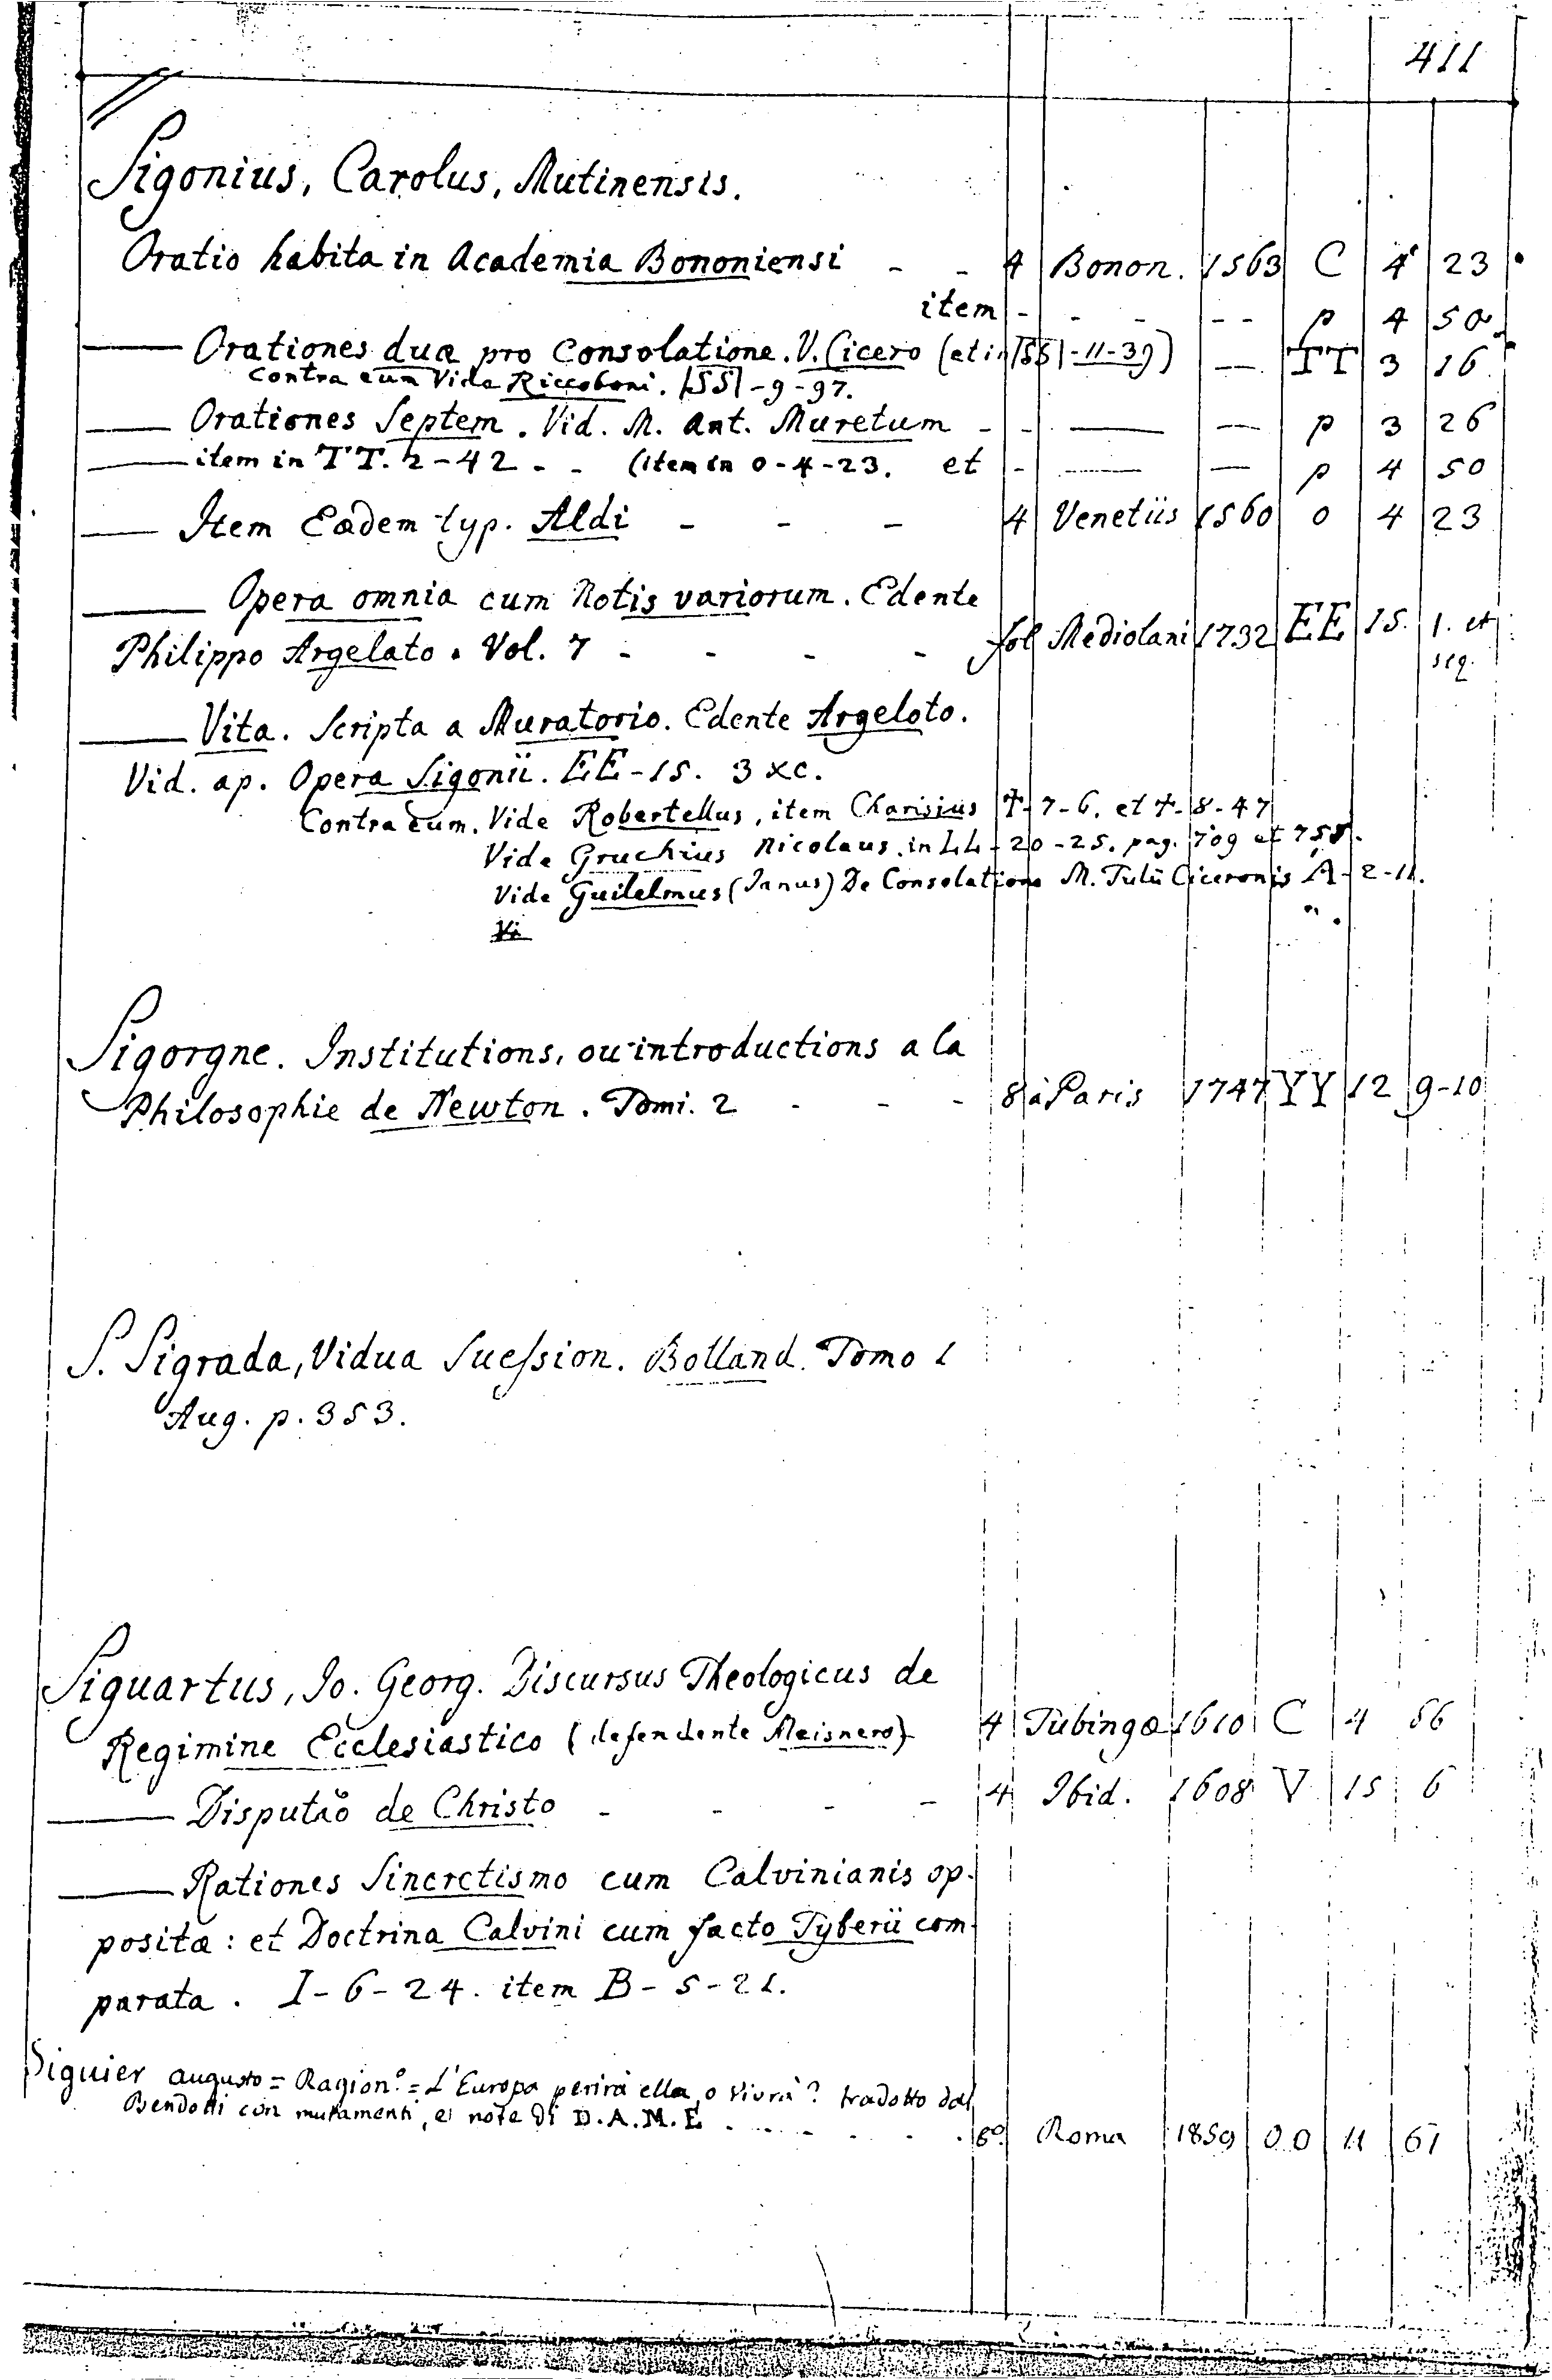 411
Sigonius, Carolus, Mutinensis.
Oratio habita in Academia Bononiensi - - 4 Bonon. 1563 C 4 23
item - - - - - p 4 50
— Orationes duæ pro Consolatione. V. Cicero (et in |SS|-11-39) — TT 3 16
Contra eum Vide Riccoboni. |SS|-9-97.
— Orationes Septem. Vid. M. Ant. Muretum - - — — p 3 26
— item in TT. 2-42 - - (item in O-4-23. et - — — p 4 50
— Item Eædem typ. Aldi - - - 4 Venetiis 1560 O 4 23
— Opera omnia cum Notis variorum. Edente
Philippo Argelato. Vol. 7 - - - - fol Mediolani 1732 EE 15. 1. et
seq.
— Vita. Scripta a Muratorio. Edente Argeloto.
Vid. ap. Opera Sigonii. EE-15. 3 &c.
Contra eum. Vide Robertellus, item Charisius T-7-6. et T-8-47
Vide Gruchius Nicolaus. in LL-20-25. pag. 709 et 758.
Vide Guilelmus (Janus) De Consolatione M. Tulii Ciceronis A-2-11.
Vi
Sigorgne. Institutions, ou introductions a la
Philosophie de Newton. Tomi. 2 - - - 8 à Paris 1747 YY 12 9-10
S. Sigrada, Vidua Suession. Bolland. Tomo 1
Aug. p. 353.
Siguartus, Jo. Georg. Discursus Theologicus de
Regimine Ecclesiastico (defendente Meisnero) 4 Tubingæ 1610 C 4 56
— Disputão de Christo - - - - 4 Ibid. 1608 V 15 6
— Rationes Sincretismo cum Calvinianis op-
positæ: et Doctrina Calvini cum facto Tyberii com-
parata. I-6-24. item B-5-21.
Siguier Augusto = Ragion.e = L'Europa perirà ella, o vivrà? tradotto dal
Bendotti con mutamenti, e note di D.A.M.E - - - - - 8º Roma 1859 OO 11 61